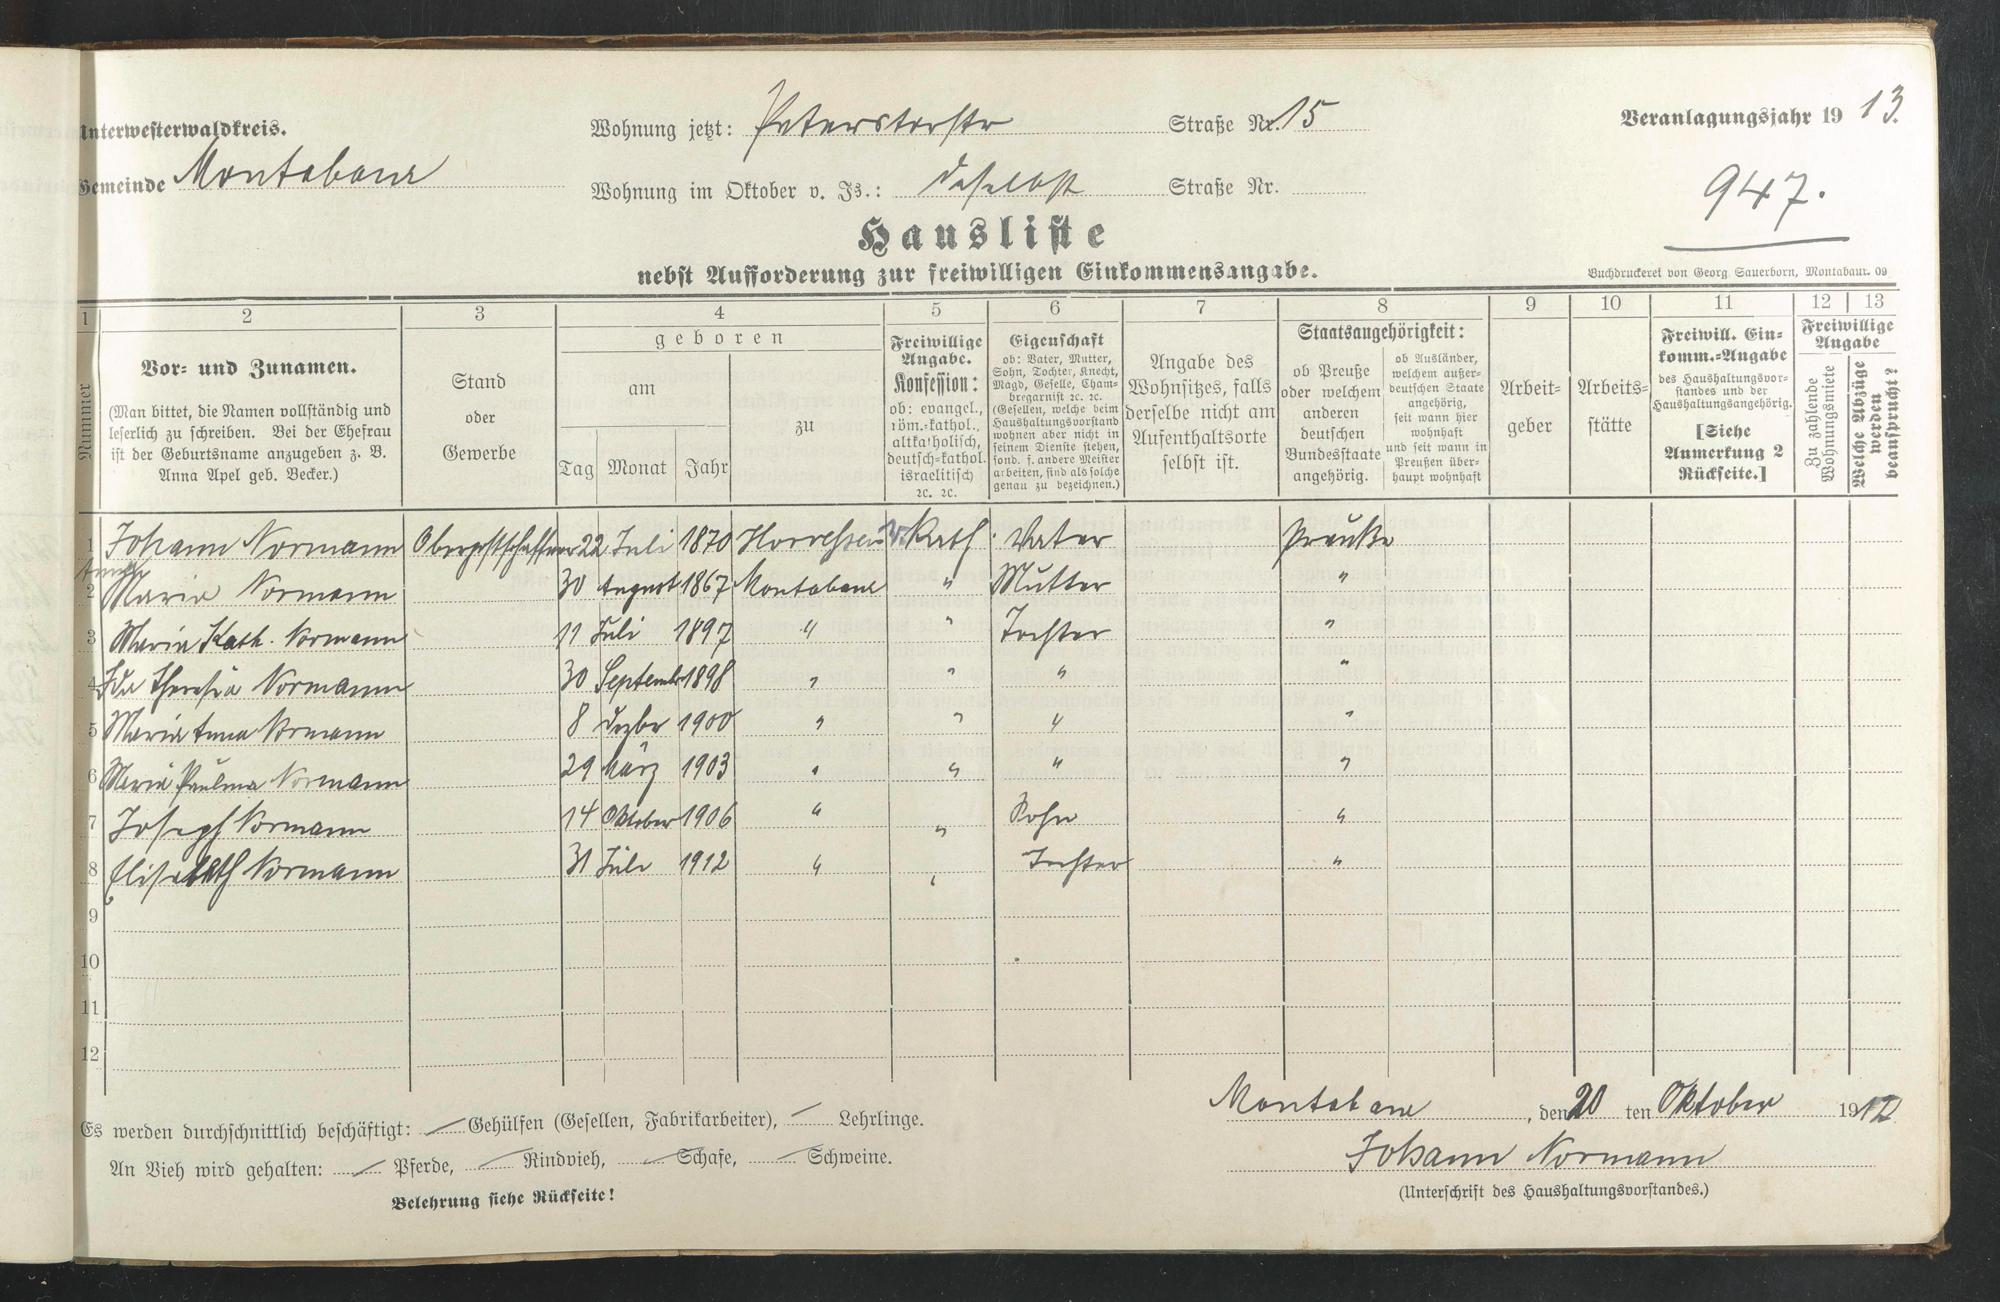 Unterwesterwaldkreis.
Gemeinde Montabaur
Wohnung jetzt: Peterstorstr Straße Nr. 15
Wohnung im Oktober v. Js.: daselbst Straße Nr.
Veranlagungsjahr 1913.
947.
Hausliste
nebst Aufforderung zur freiwilligen Einkommensangabe.
Buchdruckerei von Georg Sauerborn, Montabaur. 09
1 2 3 4 5 6 7 8 9 10 11 12 13
Nummer
Vor- und Zunamen.
(Man bittet, die Namen vollständig und
leserlich zu schreiben. Bei der Ehefrau
ist der Geburtsname anzugeben z. B.
Anna Apel geb. Becker.)
Stand
oder
Gewerbe
geboren
am
Tag Monat Jahr
zu
Freiwillige
Angabe.
Konfession:
ob: evangel.,
röm.-kathol.,
altkatholisch,
deutsch-kathol.
israelitisch
ꝛc. ꝛc.
Eigenschaft
ob: Vater, Mutter,
Sohn, Tochter, Knecht,
Magd, Geselle, Cham-
bregarnist ꝛc. ꝛc.
(Gesellen, welche beim
Haushaltungsvorstand
wohnen aber nicht in
seinem Dienste stehen,
sond. f. andere Meister
arbeiten, sind als solche
genau zu bezeichnen.)
Angabe des
Wohnsitzes, falls
derselbe nicht am
Aufenthaltsorte
selbst ist.
Staatsangehörigkeit:
ob Preuße
oder welchem
anderen
deutschen
Bundesstaate
angehörig.
ob Ausländer,
welchem außer-
deutschen Staate
angehörig,
seit wann hier
wohnhaft
und seit wann in
Preußen über-
haupt wohnhaft
Arbeit-
geber
Arbeits-
stätte
Freiwill. Ein-
komm.-Angabe
des Haushaltungsvor-
standes und der
Haushaltungsangehörig.
[Siehe
Anmerkung 2
Rückseite.]
Freiwillige
Angabe
Zu zahlende
Wohnungsmiete
Welche Abzüge
werden
beansprucht?
1 Johann Normann Oberpostschaffner 22 Juli 1870 Horressen r. Kath. Vater Preuße
2 Maria Normann 30 August 1867 Montabaur " Mutter "
3 Maria Kath. Normann 11 Juli 1897 " " Tochter "
4 Ida Theresia Normann 30 Septembr 1898 " " " "
5 Maria Anna Normann 8 Dezbr 1900 " " " "
6 Maria Paulina Normann 29 März 1903 " " " "
7 Joseph Normann 14 Oktober 1906 " " Sohn "
8 Elisabeth Normann 31 Juli 1912 " " Tochter "
9
10
11
12
Es werden durchschnittlich beschäftigt: — Gehülfen (Gesellen, Fabrikarbeiter), — Lehrlinge.
An Vieh wird gehalten: — Pferde, — Rindvieh, — Schafe, — Schweine.
Belehrung siehe Rückseite!
Montabaur, den 20 ten Oktober 1912
Johann Normann
(Unterschrift des Haushaltungsvorstandes.)